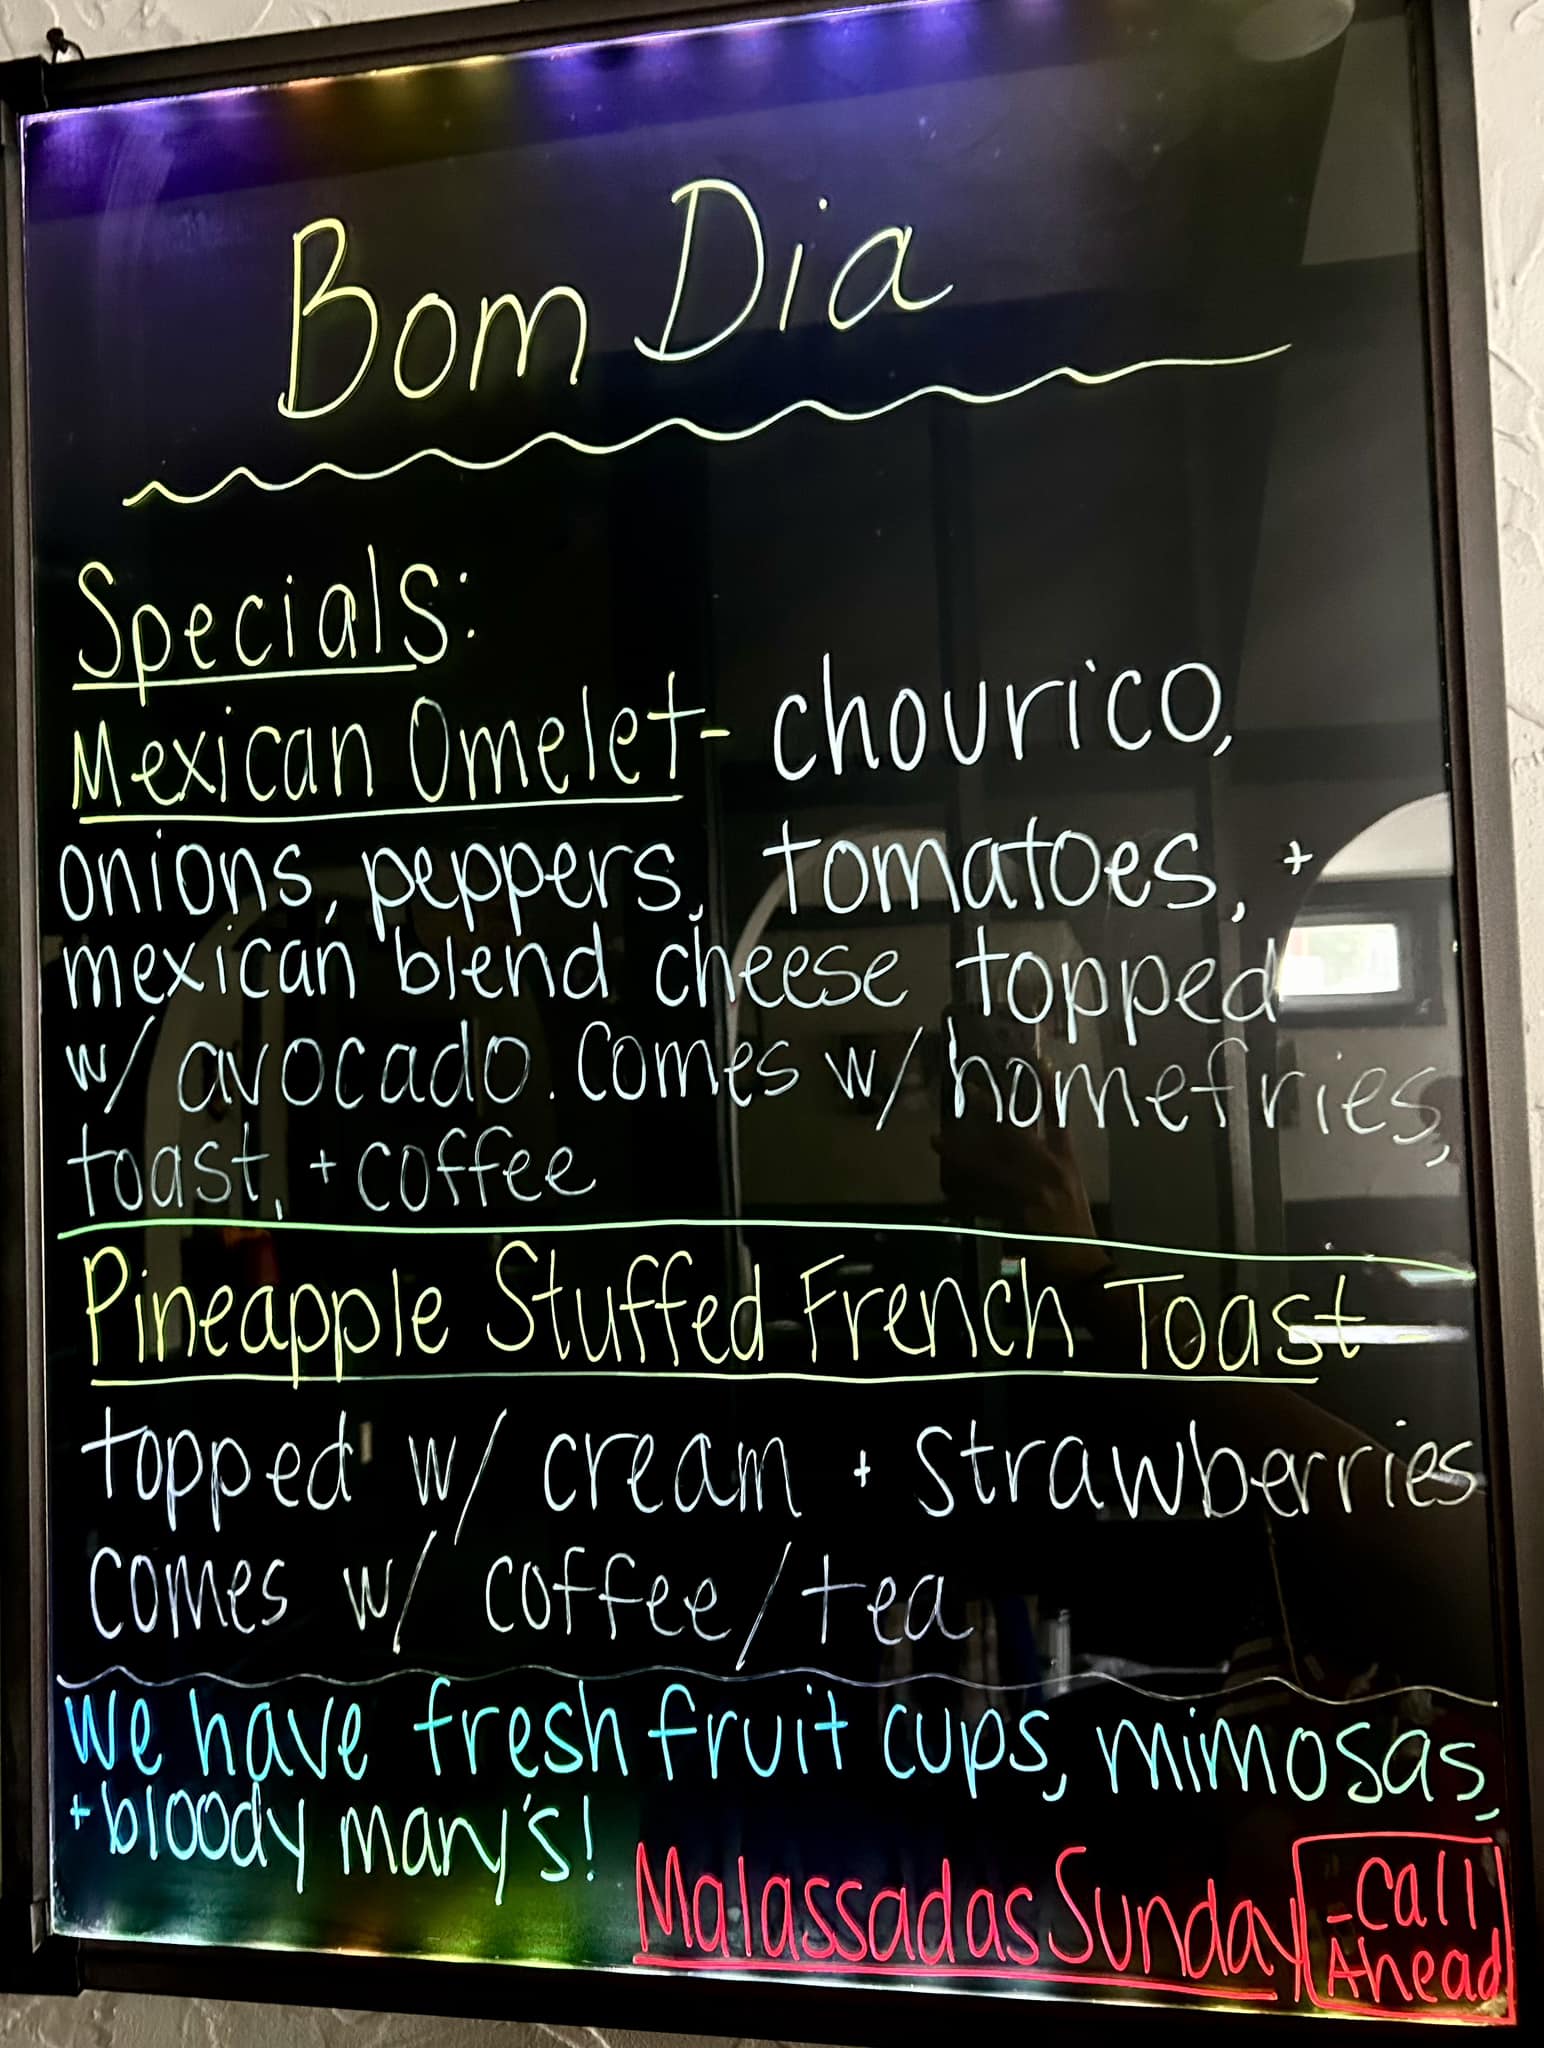 Bom Dia
Specials:
Mexican Omelet - chourico,
onions, peppers, tomatoes, +
mexican blend cheese topped
w/ avocado. Comes w/ homefries,
toast, + coffee
Pineapple Stuffed French Toast -
topped w/ cream + strawberries
comes w/ coffee/tea
We have fresh fruit cups, mimosas,
+ bloody mary's!
Malassadas Sunday - Call
Ahead